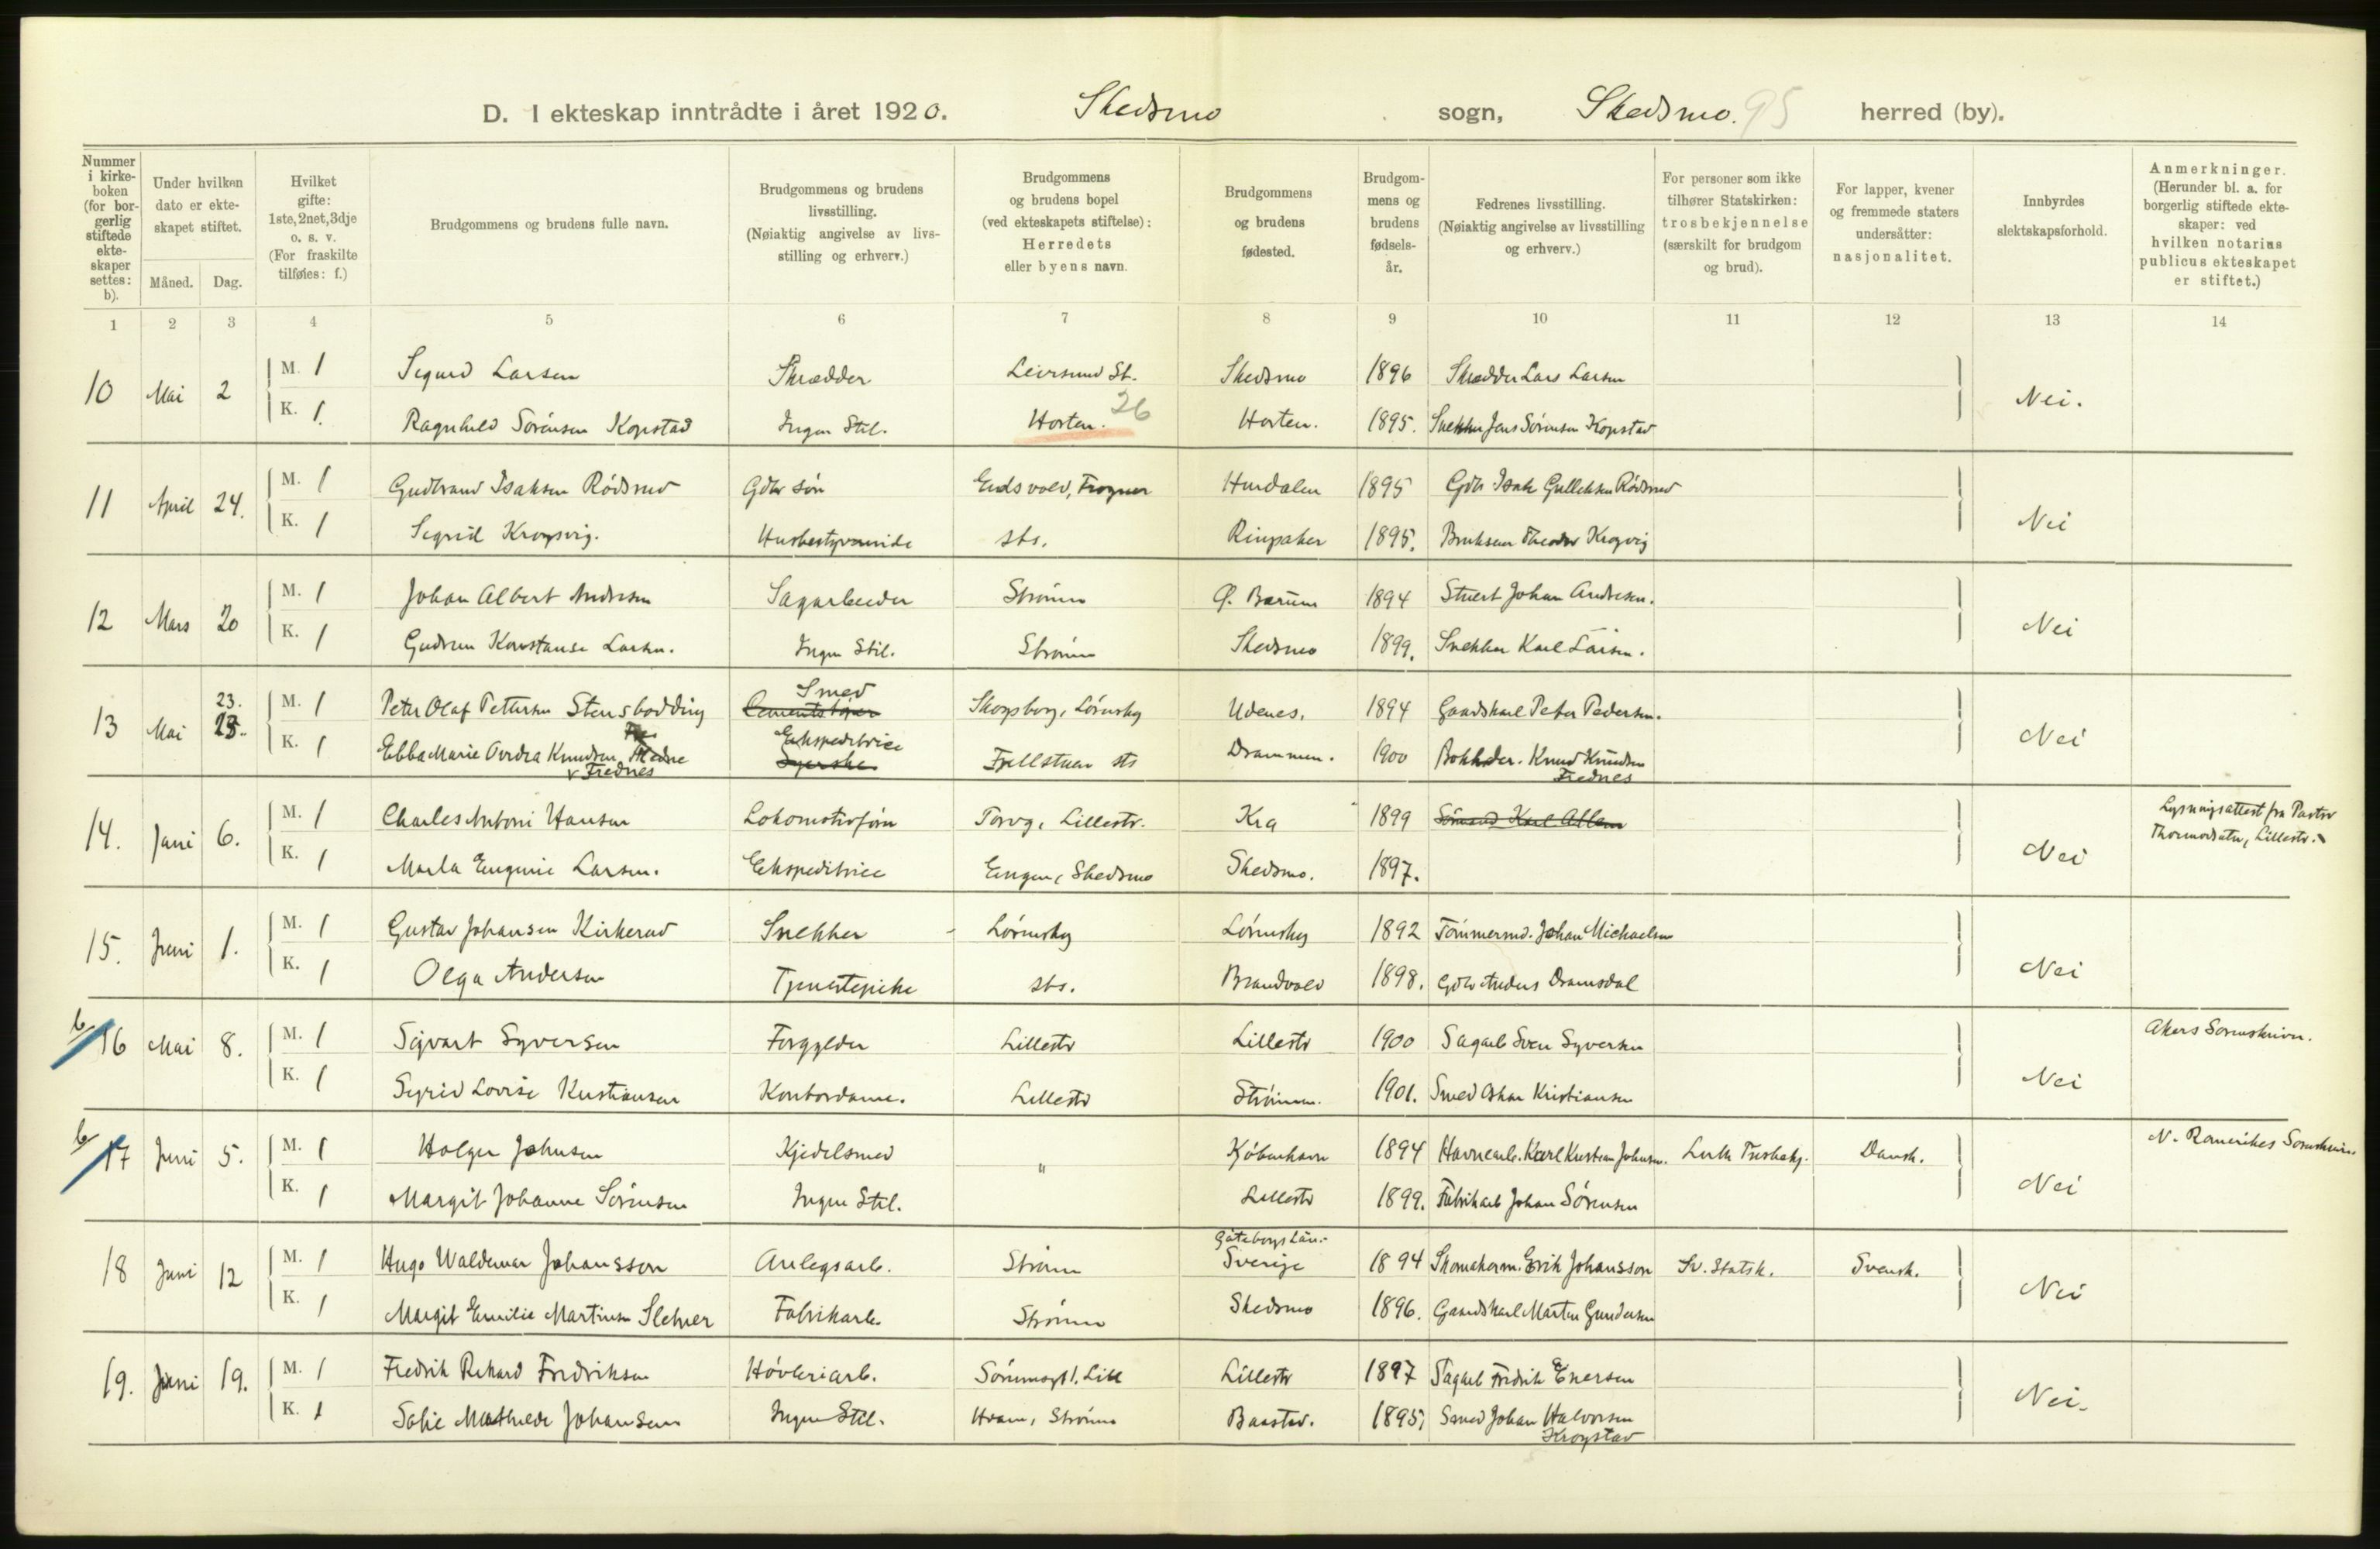 D. I ekteskap inntrådte i året 1920. Skedsmo sogn, Skedsmo. 95 herred (by).
Nummer i kirke-boken (for bor-gerlig stiftede ekte-skaper settes: b).
Under hvilken dato er ekte-skapet stiftet.
Måned. Dag.
Hvilket gifte: 1ste, 2net, 3dje o. s. v. (For fraskilte tilføies: f.)
Brudgommens og brudens fulle navn.
Brudgommens og brudens livsstilling. (Nøiaktig angivelse av livs-stilling og erhverv.)
Brudgommens og brudens bopel (ved ekteskapets stiftelse): Herredets eller byens navn.
Brudgommens og brudens fødested.
Brudgom-mens og brudens fødsels-år.
Fedrenes livsstilling. (Nøiaktig angivelse av livsstilling og erhverv.)
For personer som ikke tilhører Statskirken: trosbekjennelse (særskilt for brudgom og brud).
For lapper, kvener og fremmede staters undersåtter: nasjonalitet.
Innbyrdes slektskapsforhold.
Anmerkninger. (Herunder bl. a. for borgerlig stiftede ekte-skaper: ved hvilken notarius publicus ekteskapet er stiftet.)
1 2 3 4 5 6 7 8 9 10 11 12 13 14
10 Mai 2 M. 1 Sigurd Larsen Skrædder Leirsund St. Skedsmo 1896 Skrædder Lars Larsen Nei.
K. 1. Ragnhild Sørensen Kopstad Ingen Stil. Horten. 26 Horten. 1895. Snekker Jens Sørensen Kopstad
11 April 24. M. 1 Gudbrand Isaksen Rødsrud Gdbr søn Eidsvold, Frogner Hurdalen 1895 Gdb Isak Gulliksen Rødsrud Nei
K. 1 Sigrid Krogsvig. Husbestyrerinde sts. Ringsaker 1895. Brukseier Theodor Krogvig
12 Mars 20 M. 1 Johan Albert Andresen Sagarbeider Strømm Ø. Bærum 1894 Stuert Johan Andresen. Nei
K. 1 Gudrun Konstanse Larsen. Ingen Stil. Strømm Skedsmo 1899. Snekker Karl Larsen.
13 Mai 23. M. 1 Peter Olaf Pettersen Stensbodding Smed Skogsborg, Lørenskg Udenes. 1894 Gaardskarl Peter Pedersen. Nei
K. 1 Ebba Marie Ovidia Knudsen Ekspeditrice Fjellstuen sts Drammen. 1900 Bokholder. Knud Knudsen
v Frednes Frednes
14. Juni 6. M. 1 Charles Antoni Hansen Lokomotivfører Torvg, Lillestr. Kra 1899 Sømand Karl Nei Lysningsattest fra Pastor
Thormodsæter, Lillestr.
K. 1 Marla Eugenie Larsen. Ekspeditrice Engen, Skedsmo Skedsmo. 1897.
15. Juni 1. M. 1 Gustav Johansen Kirkerud Snekker Lørenskg Lørenskg 1892 Tømmermd. Johan Michaelsen Nei
K. 1 Olga Andersen Tjenestepike sts. Brandvold 1898. Gdbr Anders Dramsdal
b/ 16 Mai 8. M. 1 Sigvart Syversen Forgylder Lillestr Lillestr 1900 Sagarb Sven Syversen Nei Akers Sorenskriver.
K. 1 Sigrid Lovise Kristiansen Kontordame. Lillestr Strømm. 1901. Smed Oskar Kristiansen
b/ 17 Juni 5. M. 1 Holger Johnsen Kjedelsmed " Kjøbenhavn 1894 Havnearb. Karl Kristian Johnsen. Luth Dansk. Nei N. Romerikes Sorenskriver
K. 1 Margit Johanne Sørensen Ingen Stil. Lillestr 1899. Fabrikarb Johan Sørensen
18 Juni 12 M. 1 Hugo Waldemar Johansson Anlegsarb. Strømm Gøteborgs Län. Sverige 1894 Skomakerm. Erik Johansson Sv. Statsk. Svensk. Nei
K. 1 Margit Emilie Martinsen Sletner Fabrikarb. Strømm Skedsmo 1896. Gaardskarl Martin Gundersen
19. Juni 19. M. 1 Fredrik Rikard Fredriksen Høvleriarb. Sørumsgt 1. Lill Lillestr 1897 Sagarb Fredrik Enersen Nei.
K. 1 Sofie Mathilde Johansen Ingen Stil. Hvam, Strømm Baastad. 1895, Smed Johan Halvorsen
Krogstad